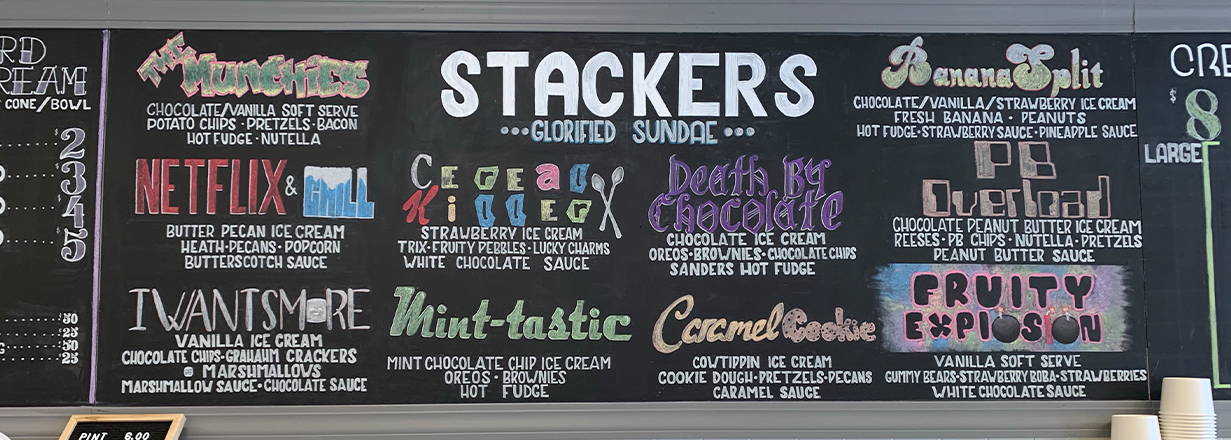 RD
REAM
CONE/BOWL
$2
3
4
5
50
50
50
25
THE MUNCHIES
CHOCOLATE/VANILLA SOFT SERVE
POTATO CHIPS · PRETZELS · BACON
HOT FUDGE · NUTELLA
NETFLIX & CHILL
BUTTER PECAN ICE CREAM
HEATH · PECANS · POPCORN
BUTTERSCOTCH SAUCE
IWANTSMORE
VANILLA ICE CREAM
CHOCOLATE CHIPS · GRAHAHM CRACKERS
MARSHMALLOWS
MARSHMALLOW SAUCE · CHOCOLATE SAUCE
STACKERS
•••GLORIFIED SUNDAE•••
CEREAL
KILLER
STRAWBERRY ICE CREAM
TRIX · FRUITY PEBBLES · LUCKY CHARMS
WHITE CHOCOLATE SAUCE
Death By
Chocolate
CHOCOLATE ICE CREAM
OREOS · BROWNIES · CHOCOLATE CHIPS
SANDERS HOT FUDGE
Mint-tastic
MINT CHOCOLATE CHIP ICE CREAM
OREOS · BROWNIES
HOT FUDGE
Caramel Cookie
COWTIPPIN ICE CREAM
COOKIE DOUGH · PRETZELS · PECANS
CARAMEL SAUCE
Banana Split
CHOCOLATE/VANILLA/STRAWBERRY ICE CREAM
FRESH BANANA · PEANUTS
HOT FUDGE · STRAWBERRY SAUCE · PINEAPPLE SAUCE
PB
Overload
CHOCOLATE PEANUT BUTTER ICE CREAM
REESES · PB CHIPS · NUTELLA · PRETZELS
PEANUT BUTTER SAUCE
FRUITY
EXPLOSION
VANILLA SOFT SERVE
GUMMY BEARS · STRAWBERRY BOBA · STRAWBERRIES
WHITE CHOCOLATE SAUCE
CRE
$8
LARGE
PINT 6.00